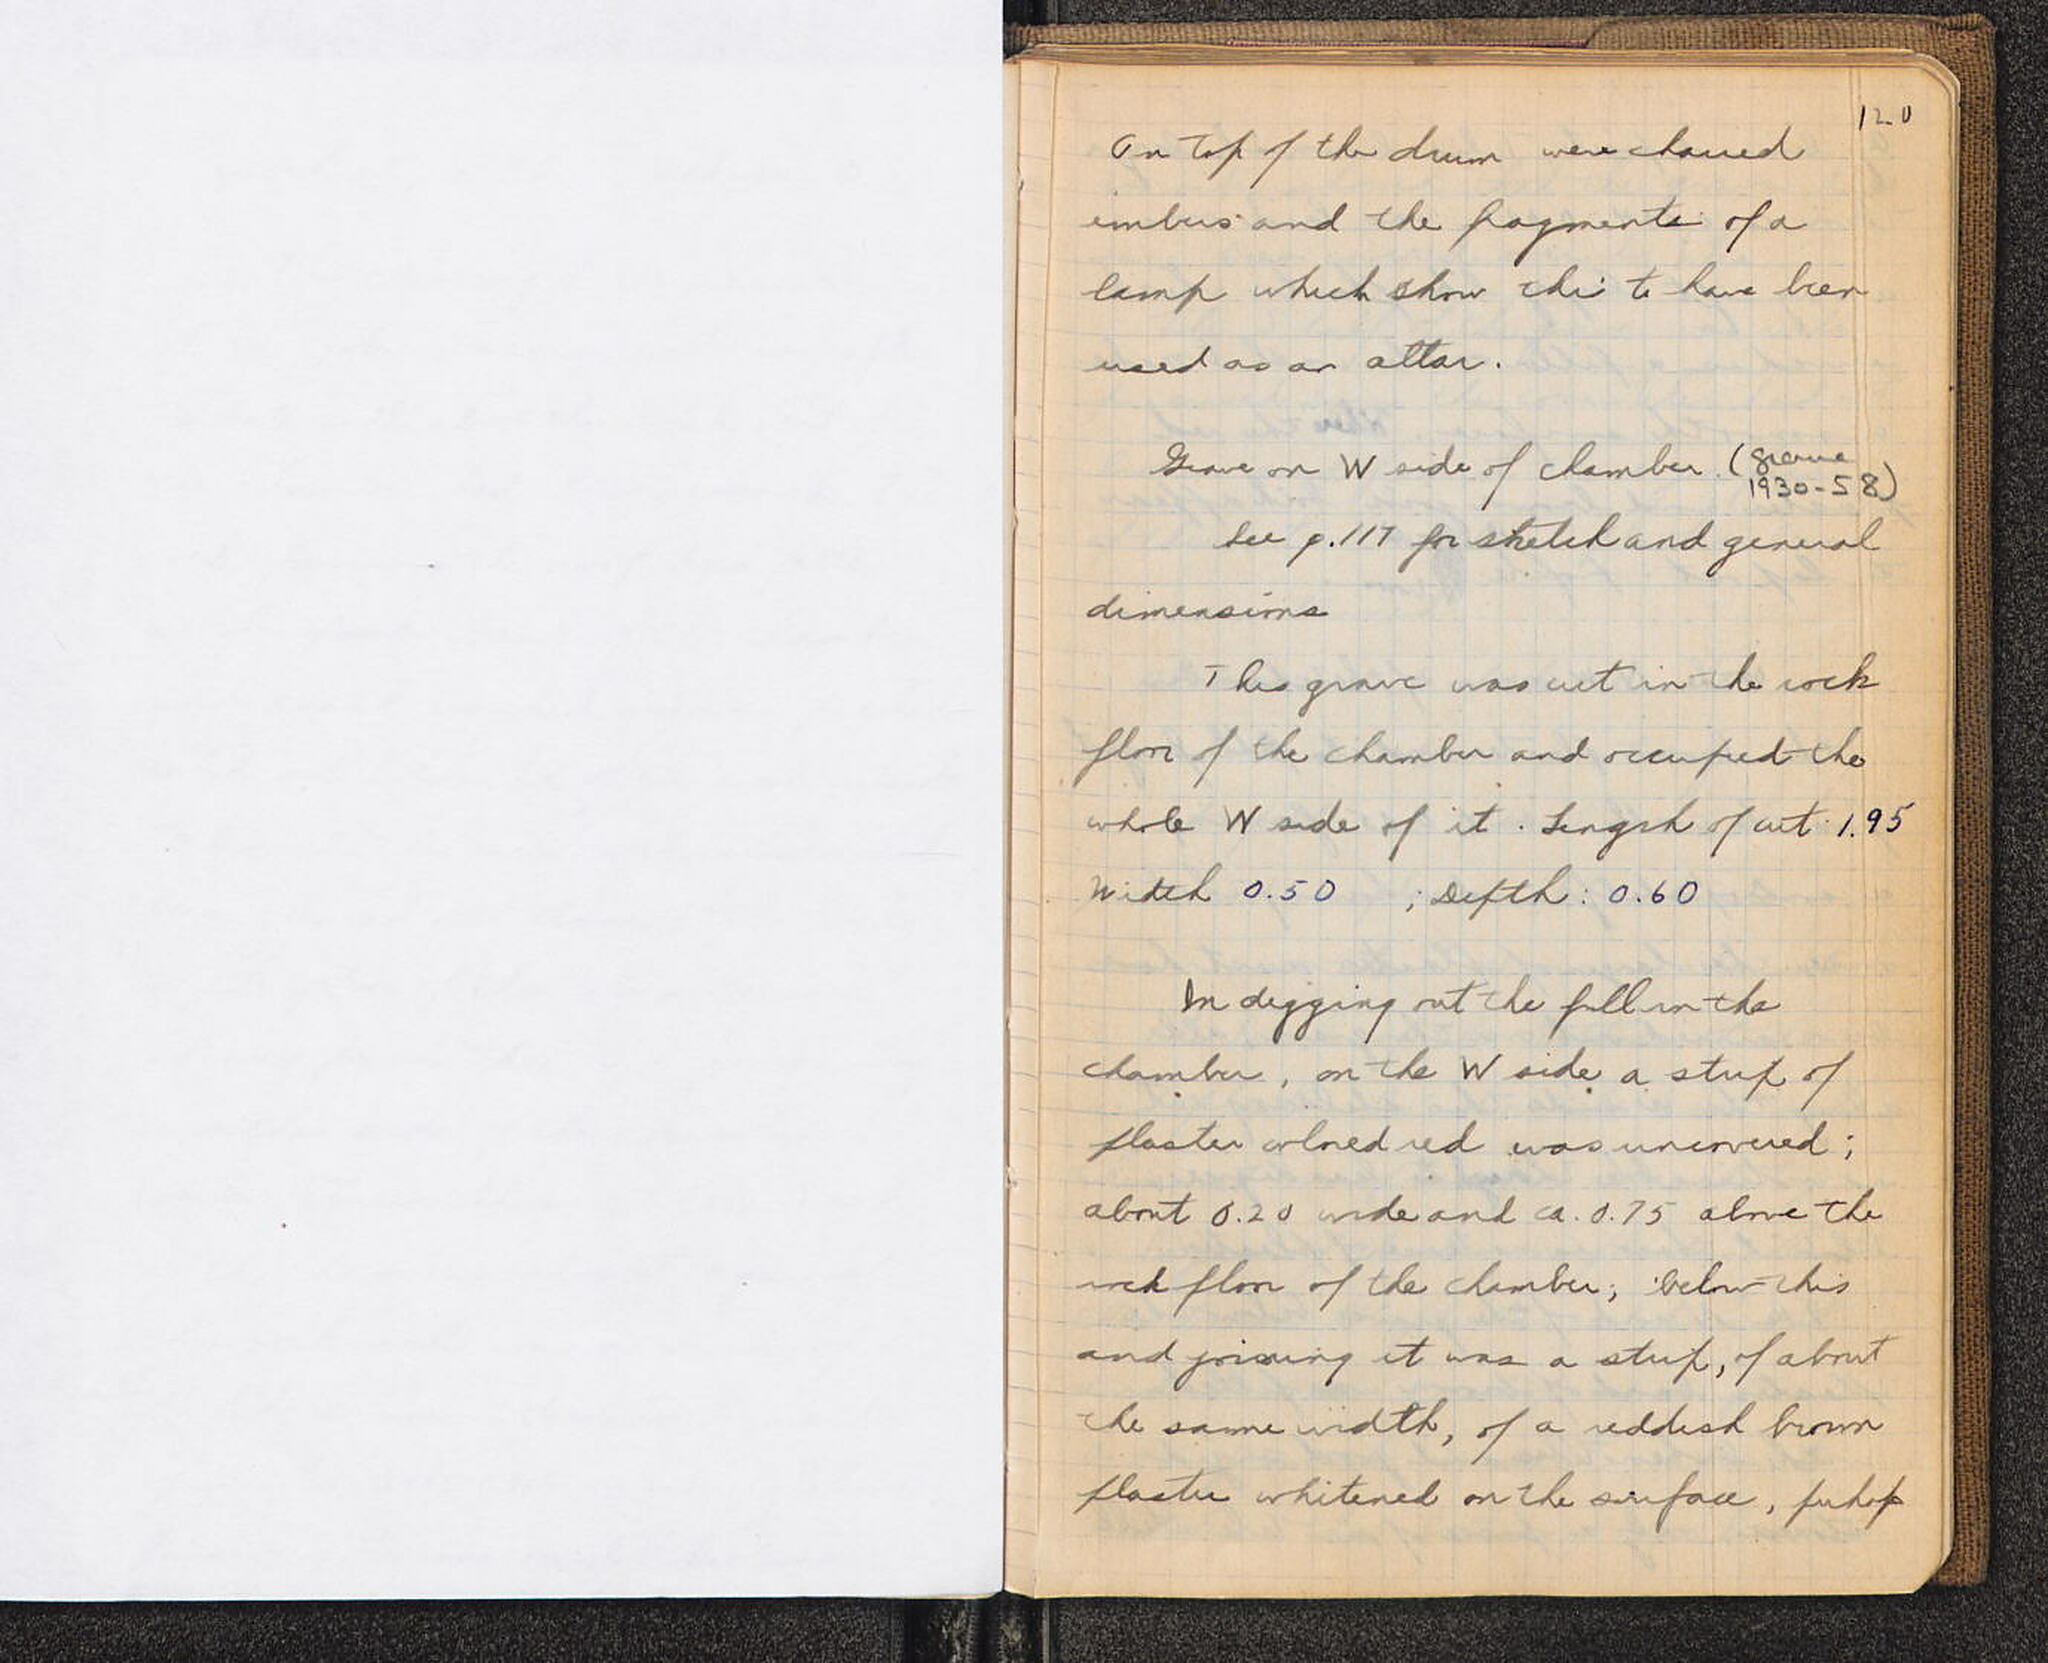 120
On top of the drum were charred
embers and the fragments of a
lamp which show this to have been
used as an altar.
Grave on W side of chamber. (grave
1930-58)
See p. 117 for sketch and general
dimensions
This grave was cut in the rock
floor of the chamber and occupied the
whole W side of it. Length of cut 1.95
Width 0.50 ; Depth: 0.60
In digging out the fill in the
chamber, on the W side a strip of
plaster colored red was uncovered;
about 0.20 wide and ca. 0.75 above the
rock floor of the chamber; below this
and joining it was a strip, of about
the same width, of a reddish brown
plaster whitened on the surface, perhaps